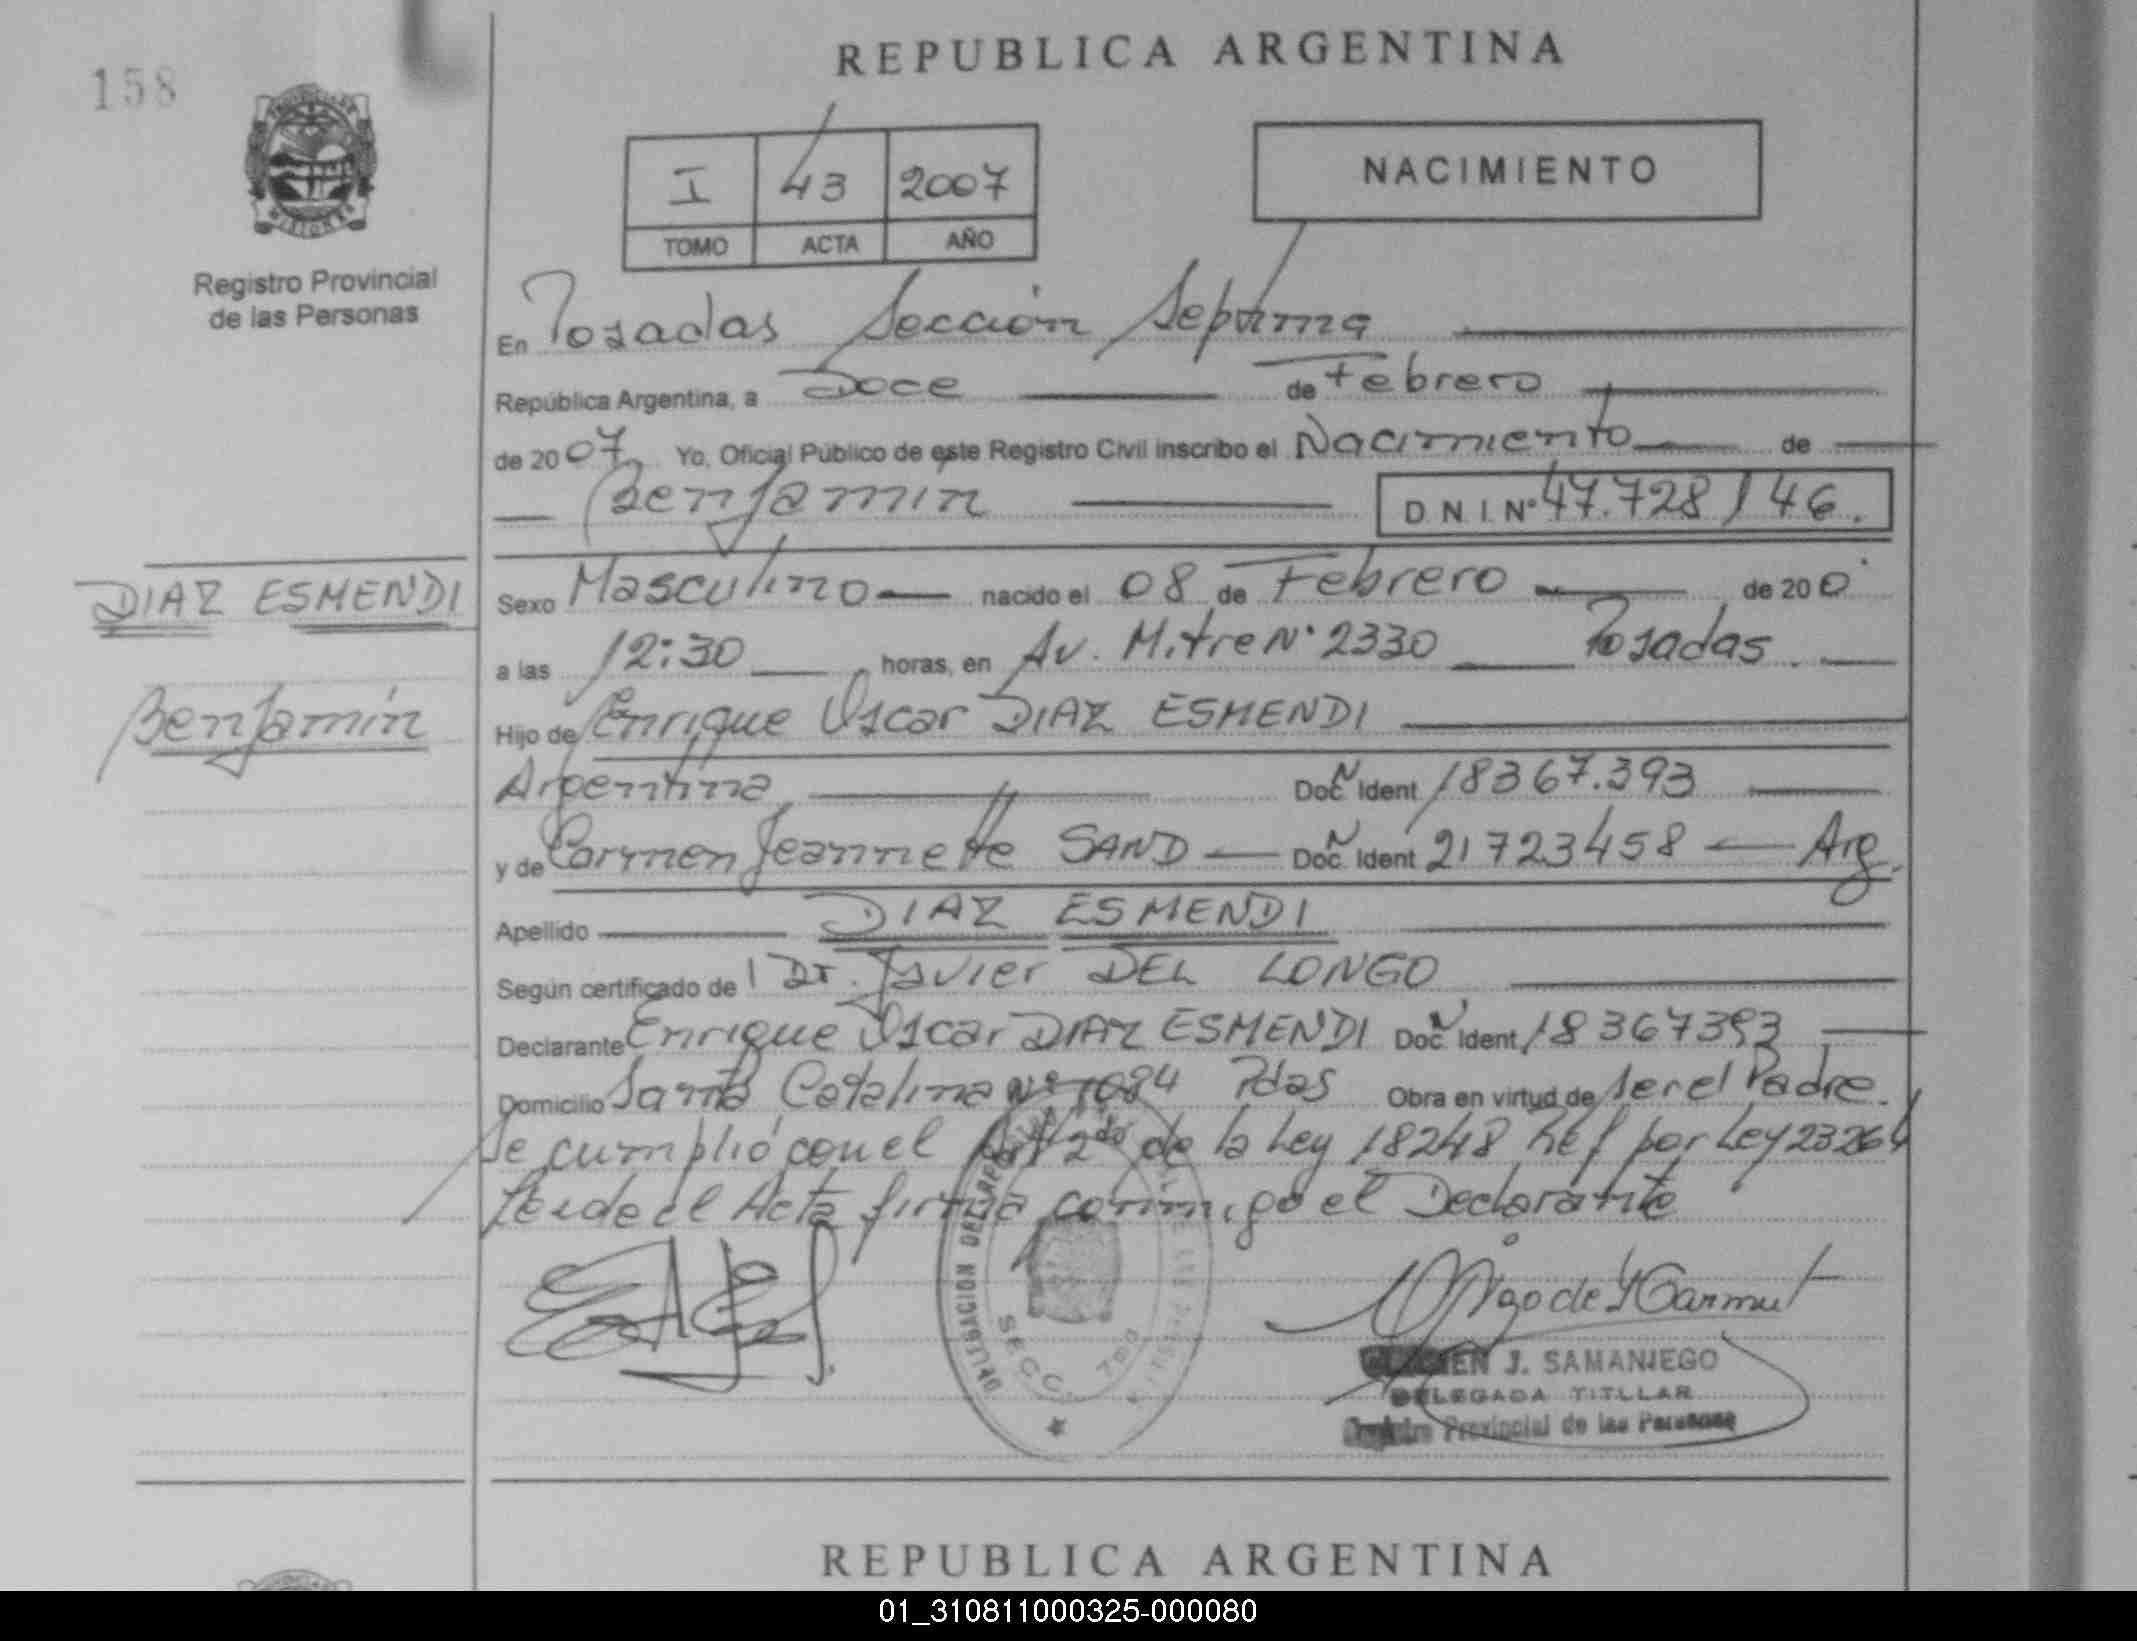 158
REPUBLICA ARGENTINA
I 43 2007
TOMO ACTA AÑO
NACIMIENTO
Registro Provincial
de las Personas
En Posadas Sección Septima
República Argentina, a Doce de Febrero
de 2007 Yo, Oficial Público de este Registro Civil inscribo el Nacimiento de
Benjamín D N I Nº 47.728146.
DIAZ ESMENDI
Benjamín
Sexo Masculino nacido el 08 de Febrero de 200
a las 12:30 horas, en Av. Mitre Nº 2330 Posadas
Hijo de Enrique Oscar DIAZ ESMENDI
Argentina Doc. Ident 18367.393
y de Carmen Jeannette SAND Doc. Ident 21723458 Arg.
Apellido DIAZ ESMENDI
Según certificado del Dr. Javier DEL LONGO
Declarante Enrique Oscar DIAZ ESMENDI Doc. Ident 18367393
Domicilio Santa Catalina Nº 1084 Pdas Obra en virtud de ser el Padre.
Se cumplió con el Art 2do de la Ley 18248 Ref por Ley 23264
Leida el Acta firma conmigo el Declarante
SECC. 7ma
J. SAMANIEGO
DELEGADA TITULAR
Registro Provincial de las Personas
REPUBLICA ARGENTINA
01_310811000325-000080